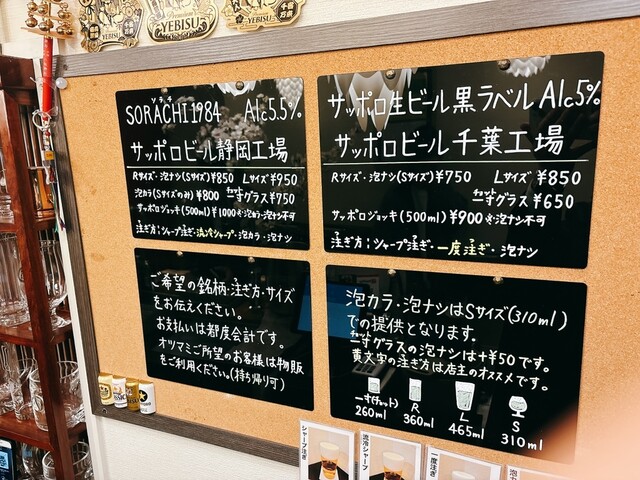 YEBISU
YEBISU
YEBISU
ソラチ
SORACHI 1984 Alc5.5%
サッポロビール静岡工場
Rサイズ・泡ナシ(Sサイズ)¥850 Lサイズ¥950
泡カラ(Sサイズのみ)¥800 チョット一寸グラス¥750
サッポロジョッキ(500ml)¥1000 ※泡カラ・泡ナシ不可
注ぎ方;シャープ注ぎ・流冷シャープ・泡カラ・泡ナシ
サッポロ生ビール黒ラベル Alc5%
サッポロビール千葉工場
Rサイズ・泡ナシ(Sサイズ)¥750 Lサイズ ¥850
チョット一寸グラス ¥650
サッポロジョッキ(500ml)¥900 ※泡ナシ不可
注ぎ方;シャープ注ぎ・一度注ぎ・泡ナシ
ご希望の銘柄・注ぎ方・サイズ
をお伝えください。
お支払いは都度会計です。
オツマミご所望のお客様は物販
をご利用ください。(持ち帰り可)
泡カラ・泡ナシはSサイズ(310ml)
での提供となります.
チョット一寸グラスの泡ナシは+¥50です。
黄文字の注ぎ方は店主のオススメです。
一寸(チョット) R L S
260ml 360ml 465ml 310ml
シャープ注ぎ
流冷シャープ
一度注ぎ